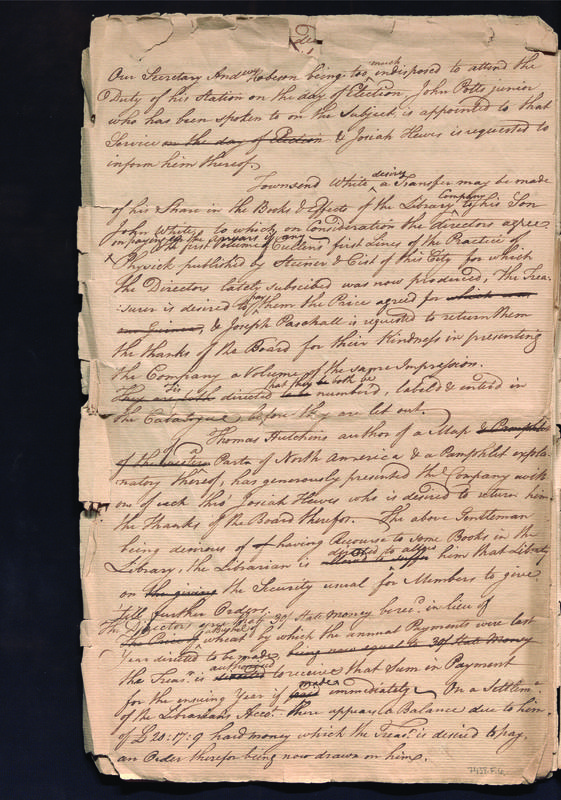 Our Secretary Andw. Robeson being too much indisposed to attend the
Duty of his Station on the day of Election, John Potts junior
who has been spoken to on the Subject, is appointed to that
Service on the day of Election & Josiah Hewes is requested to
inform him thereof.
Townsend White desires a Transfer may be made
of his Share in the Books & Effects of the Library Company to his Son
John White, to which on Consideration the Directors agree
on paying the Arrears if any
The first Volume of Cullens first Lines of the Practice of
Physick published by Steiner & Cist of this City for which
the Directors lately subscribed was now produced, The Trea-
surer is desired to pay them the Price agreed for which was
& Joseph Paschall is requested to return them
the thanks of the Board for their Kindness in presenting
the Company a Volume of the same Impression.
They are both directed that they be both numberd, labeld & enterd in
the Catalogue before they are let out.
Thomas Hutchins author of a Map & Pamphlet
of the western Parts of North America & a Pamphlet expla-
natory thereof, has generously presented the Company with
one of each thro' Josiah Hewes who is desired to return him
the Thanks of the Board therefor. The above Gentleman
being desirous of having Recourse to some Books in the
Library, the Librarian is directed to allow him that Liberty
on the giving the Security usual for Members to give
till further Orders.
The Directors agree that 30/ State money be recd. in lieu of
the Price of a Bushel of wheat by which the annual Payments were last
Year directed to be made being now equal to 30/ State Money
the Treasr. is authorized directed to receive that Sum in Payment
for the ensuing Year if paid made immediately. On a Settlemt.
of the Librarians Acct. there appears a Balance due to him
of £20:17:9 hard money which the Treasr. is desired to pay,
an Order therefor being now drawn on him.
7438.F.6